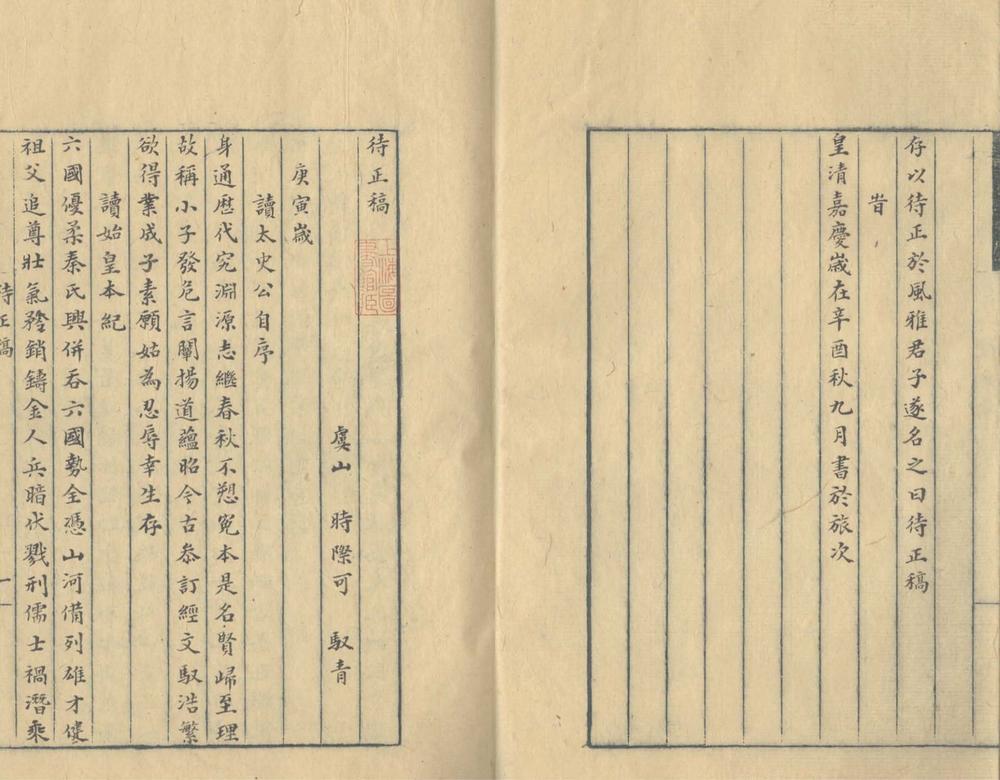 存以待正於風雅君子遂名之曰待正稿
旹
皇清嘉慶歲在辛酉秋九月書於旅次
待正稿
虞山 時際可 馭青
庚寅歲
讀太史公自序
身通歷代究淵源志繼春秋不愬寃本是名賢歸至理
故稱小子發危言闡揚道蘊昭今古叅訂經文馭浩繁
欲得業成子素願姑為忍辱幸生存
讀始皇本紀
六國優柔秦氏興併吞六國勢全憑山河備列雄才
祖父追尊壯氣矜銷鑄金人兵暗伏戮刑儒士禍潛乘
待正稿
一
上海圖書館藏